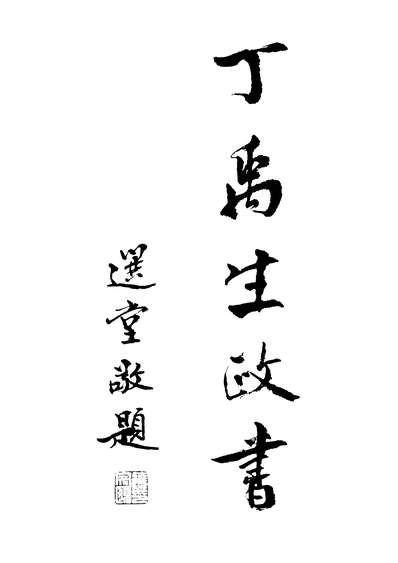 丁禹生政書
選堂敬題